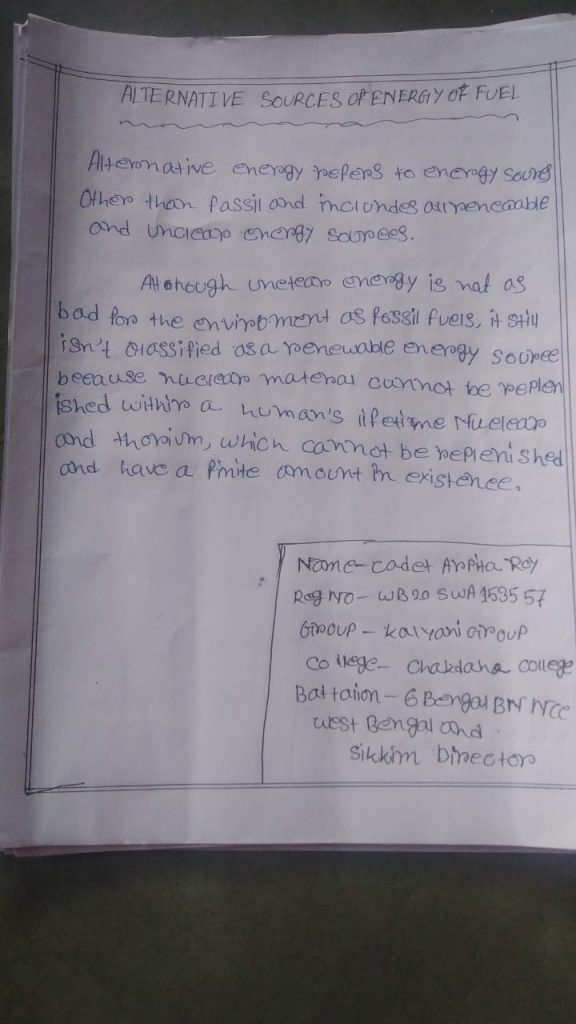 ALTERNATIVE SOURCES OF ENERGY OF FUEL
Alternative energy refers to energy sources
Other than fassil and inclundes all renewable
and unclear energy sources.
Although unclear energy is not as
bad for the environment as fossil fuels, it still
isn't classified as a renewable energy source
because nuclear material cannot be replen
ished within a human's lifetime Nuclear
and thorium, which cannot be replenished
and have a finite amount in existence.
Name - Cadet Arpita Roy
Reg No - WB20SWA153557
Group - Kalyani Group
College - Chakdaha College
Battalion - 6 Bengal BN NCC
West Bengal and
Sikkim Director